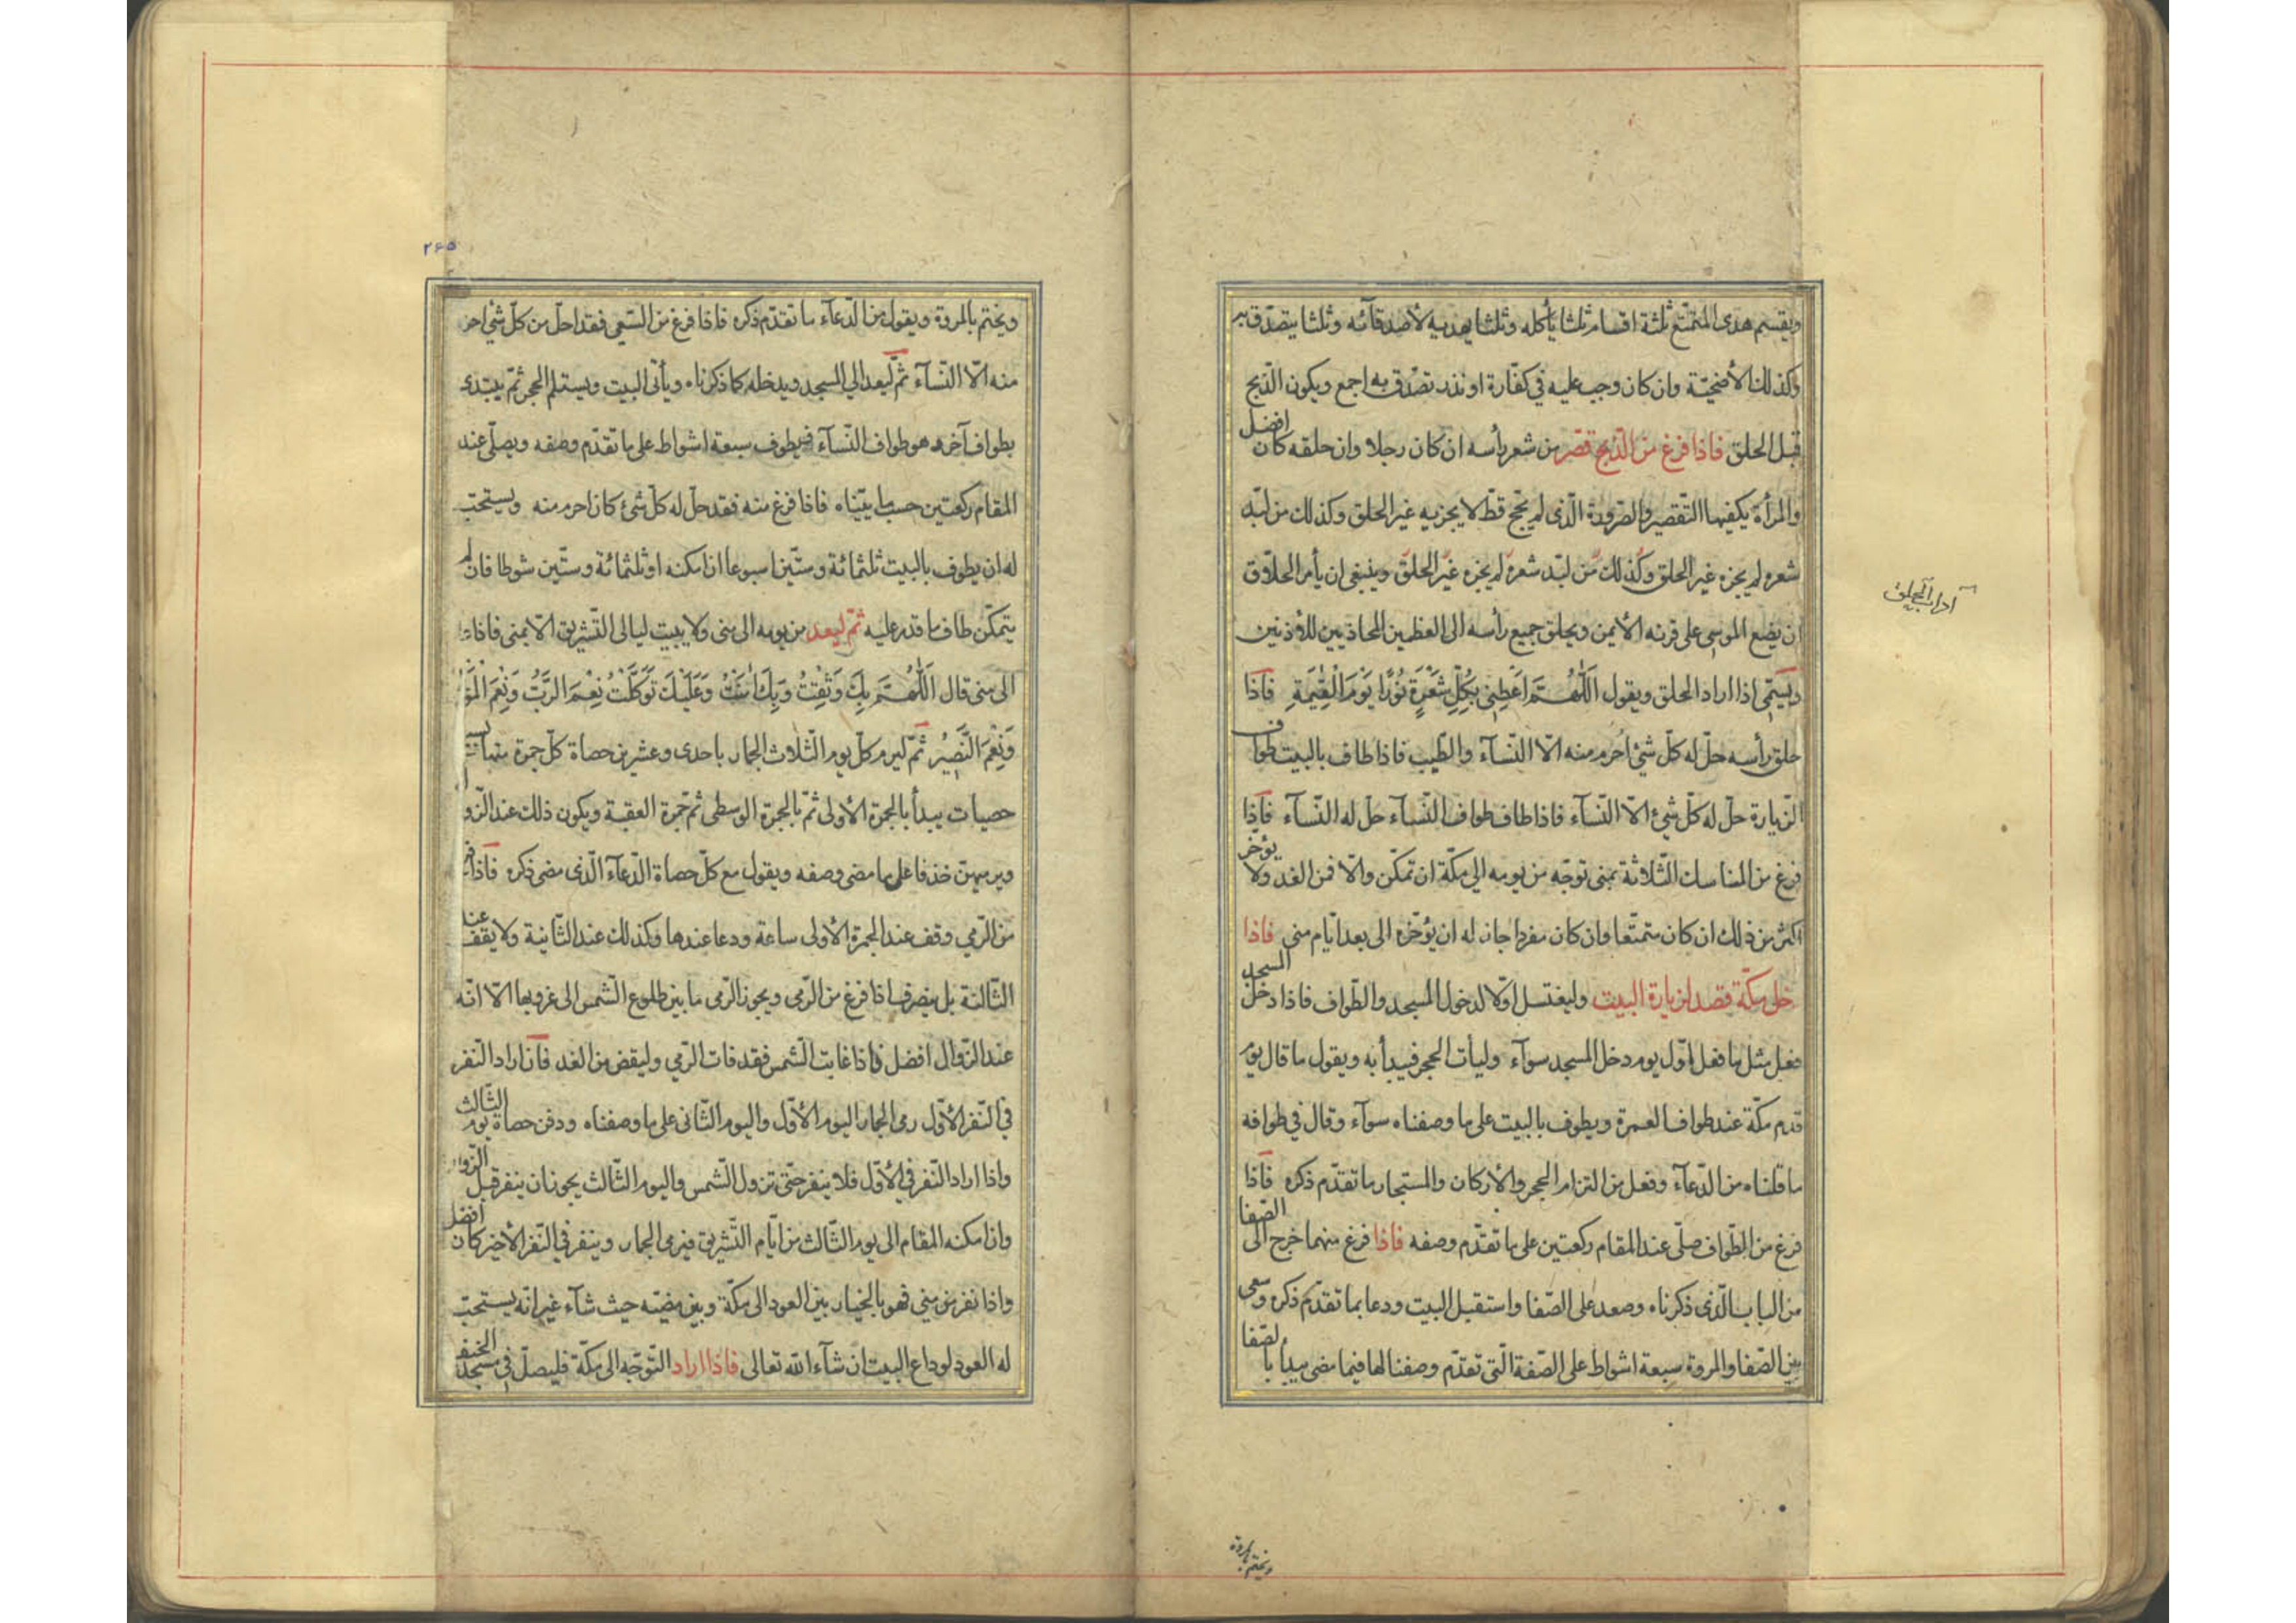 ويقسم هدى المتمتّع ثلثة اقسام ثلثا يأكله وثلثا يهديه لأصدقآئه وثلثا يتصدّق به
وكذلك الأضحيّة وان كان وجب عليه في كفّارة او نذر تصدّق به اجمع ويكون الذّبح
قبل الحلق فاذا فرغ من الذّبح قصّر من شعر رأسه ان كان رجلا وان حلقه كان افضل
والمرأة يكفيها التّقصير والصّرورة الّذى لم يحجّ قطّ لا يجزيه غير الحلق وكذلك من لبّد
شعره لم يجزه غير الحلق وكذلك من لبّد شعره لم يجزه غير الحلق وينبغى ان يأمر الحلّاق
ان يضع الموسى على قرنه الأيمن ويحلق جميع رأسه الى العظمين المحاذيين للأذنين
ويسمّى اذا اراد الحلق ويقول اَللّٰهُمَّ اَعْطِنِى بِكُلِّ شَعْرَةٍ نُورًا يَوْمَ الْقِيٰمَةِ فاذا
حلق رأسه حلّ له كلّ شئ احرم منه الّا النّسآء والطّيب فاذا طاف بالبيت طواف
الزّيارة حلّ له كلّ شئ الّا النّسآء فاذا طاف طواف النّسآء حلّ له النّسآء فاذا
فرغ من المناسك الثّلاثة بمنى توجّه من يومه الى مكّة ان تمكّن والّا فمن الغد ولا يؤخّر
اكثر من ذلك ان كان متمتّعا وان كان مفردا جاز له ان يؤخّره الى بعد ايّام منى فاذا
دخل مكّة قصد لزيارة البيت وليغتسل اوّلا لدخول المسجد والطّواف فاذا دخل المسجد
فعل مثل ما فعل اوّل يوم دخل المسجد سوآء وليأت الحجر فيبدأ به ويقول ما قال يوم
قدم مكّة عند طواف العمرة ويطوف بالبيت على ما وصفناه سوآء وقال في طوافه
ما قلناه من الدّعآء وفعل من التزام الحجر والأركان والمستجار ما تقدّم ذكره فاذا
فرغ من الطّواف صلّى عند المقام ركعتين على ما تقدّم وصفه فاذا فرغ منهما خرج الى الصّفا
من الباب الّذى ذكرناه وصعد على الصّفا واستقبل البيت ودعا بما تقدّم ذكره وسعى
بين الصّفا والمروة سبعة اشواط على الصّفة الّتى تقدّم وصفنا لها فيما مضى يبدأ بالصّفا
ويختم بالمروة
آداب الحلق
۲۶۵
ويختم بالمروة ويقول من الدّعآء ما تقدّم ذكره فاذا فرغ من السّعى فقد احلّ من كلّ شئ احرم
منه الّا النّسآء ثمّ ليعد الى المسجد ويدخله كما ذكرناه ويأتى البيت ويستلم الحجر ثمّ يبتدى
بطواف آخر هو طواف النّسآء فيطوف سبعة اشواط على ما تقدّم وصفه ويصلّى عند
المقام ركعتين حسب ما بيّنّاه فاذا فرغ منه فقد حلّ له كلّ شئ كان احرم منه ويستحبّ
له ان يطوف بالبيت ثلثمائة وستّين اسبوعا ان امكنه او ثلثمائة وستّين شوطا فان لم
يتمكّن طاف ما قدر عليه ثمّ ليعد من يومه الى منى ولا يبيت ليالى التّشريق الّا بمنى فاذا
الى منى قال اَللّٰهُمَّ بِكَ وَثِقْتُ وَبِكَ اٰمَنْتُ وَعَلَيْكَ تَوَكَّلْتُ نِعْمَ الرَّبُّ وَنِعْمَ
وَنِعْمَ النَّصِيرُ ثمّ ليرم كلّ يوم الثّلاث الجمار باحدى وعشرين حصاة كلّ جمرة منها
حصيات يبدأ بالجمرة الأولى ثمّ بالجمرة الوسطى ثمّ جمرة العقبة ويكون ذلك عند الزّو
ويرميهنّ خذفا على ما مضى وصفه ويقول مع كلّ حصاة الدّعآء الّذى مضى ذكره فاذا
من الرّمى وقف عند الجمرة الأولى ساعة ودعا عندها وكذلك عند الثّانية ولا يقف عند
الثّالثة بل ينصرف اذا فرغ من الرّمى ويجوز الرّمى ما بين طلوع الشّمس الى غروبها الّا انّه
عند الزّوال افضل فاذا غابت الشّمس فقد فات الرّمى وليقض من الغد فان اراد النّفر
في النّفر الأوّل رمى الجمار اليوم الأوّل واليوم الثّانى على ما وصفناه ودفن حصاة يوم الثّالث
واذا اراد النّفر في الأوّل فلا ينفر حتّى تزول الشّمس واليوم الثّالث يجوز ان ينفر قبل الزّوال
وان امكنه المقام الى يوم الثّالث من ايّام التّشريق فيرمى الجمار وينفر في النّفر الأخير كان افضل
واذا نفر من منى فهو بالخيار بين العود الى مكّة وبين مضيّه حيث شآء غير انّه يستحبّ
له العود لوداع البيت ان شآء الله تعالى فاذا اراد التّوجّه الى مكّة فليصلّ في مسجد الخيف